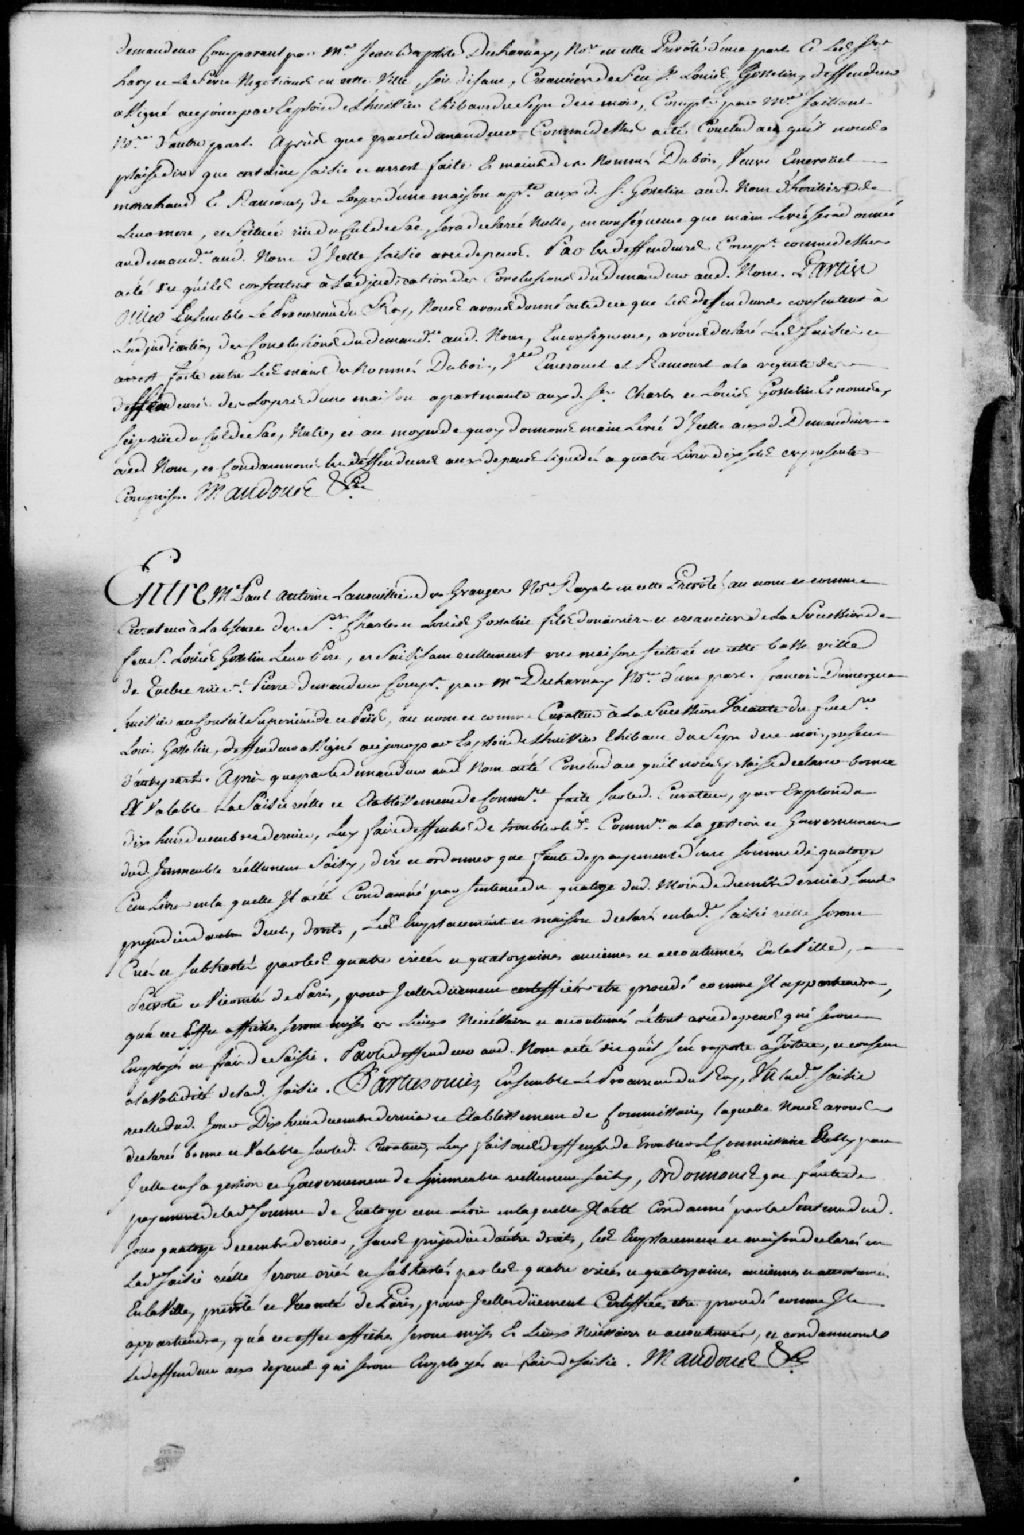 demandeur Comparant par Mre Jean Baptiste Decharnay, Nore en cette Prévôté d'une part. Et Les Srs
Lary et Le Fevre Negotiants en cette Ville, soit disant, Creanciers de feu Sr Louis Gosselin, deffendeurs
assigné a ce jour par Exploit de L'huissier Thibault du Sept de ce mois, Compts par Me Saillant
Nre d'autre part. Après que par le demandeur Comme dit est a été Conclud a ce qu'il nous
plaise dire que certaine saisie et arrest faite Es mains des Nommés Dubois, Veuve Emeronet
marchand Et Rancourt de Loyers d'une maison apte aux d. Srs Gosselin aud. Nom d'héritiers de
Leur mere, et scituée rue du Cul de Sac, sera declarée Nulle, en conséquence que main Levée sera donnée
au demandr aud. Nom d'Icelle saisie avec depens. Par les deffendeurs Compts comme dit est
a été dit qu'ils consentent à L'adjudication des Conclusions du demandeur aud. Nom. Parties
Ouies Ensemble Le Procureur du Roy, Nous avons donné acte de ce que Les deffendeurs consentent à
L'adjudication des Conclusions du demandr aud. Nom, En conséquence, avons déclaré La d. saisie et
arrest faite entre Les mains des Nommés Dubois, Vve Emeronet et Rancourt a la requete des
deffendeurs des Loyers d'une maison apartenante aux d. Srs Charles et Louis Gosselin Es noms,
scize rue du Cul de Sac, Nulle, et au moyen de quoy donnons main Levée d'Icelle aux d. Demandeur
aud Nom, et Condamnons les deffendeurs aux depens Liquidés a quatre Livres dix sols ces presentes
Comprises. Mandons &ca

Entre Me Paul Antoine Lanouillier Des Granges Nore Royal en cette Prevôté au nom et comme
Curateur à L'absence des Srs Charles et Louis Gosselin fils douairiers et creanciers de La Succession de
feu Sr Louis Gosselin Leur Pere, et Saisissant reellement une maison scituée en cette basse ville
de Quebec rue St Pierre demandeur Compt par Me Decharnay Nore d'une part. François Dumergue
huissier au Conseil Superieur de ce Païs, au nom et comme Curateur à La Succession Vacante du feu Sr
Louis Gosselin, deffendeur assigné a ce jour par Exploit de L'huissier Thibault du Sept de ce mois, present
d'autre part. Après que par le demandeur aud Nom a été Conclud a ce qu'il nous plaise declarer bonne
Et Valable La Saisie réelle et Etablissement de Commre faite sur led. Curateur, par Exploit du
dix huit decembre dernier, Luy faire deffenses de troubler le d. Commre a La gestion et Gouvernement
dud. Immeuble réellement Saisy, dire et ordonner que faute de payement d'une somme de quatorze
Cent Livres en la quelle Il a été Condamné par Sentence du quatorze dud. Mois de decembre dernier, sans
prejudice d'autres deus, droits, Les Emplacement et maison declarés en lad. saisie réelle seront
Criés et Subhastés par les quatre criées et quatorzaines anciennes et accoutumées En la Ville,
Prevôté et Vicomté de Paris, pour Icelles duement certiffiées etre procedé comme Il appartiendra,
qu'a cet Effet affiches seront mises es Lieux Nécéssaires et accoutumés Le tout avec depens qui seront
Employés en frais de Saisie. Par le deffendeur aud. Nom a été dit qu'il s'en raporte à Justice, et consent
a la Validité de lad. Saisie. Parties ouies, Ensemble Le Procureur du Roy, Vû lad. saisie
reelle dud. Jour Dix huit decembre dernier et Etablissement de Commissaire, laquelle Nous avons
declarée bonne et Valable sur led. Curateur, Luy faisons deffenses de troubler Le Commissaire Etably par
Icelle en sa gestion et Gouvernement de L'immeuble reellement saisy, Ordonnons que faute de
payement de lad. somme de Quatorze cent Livres en laquelle Il a été Condamné par la Sentence dud.
Jour quatorze Decembre dernier, sans prejudice d'autres droits, Les Emplacement et maison declarés en
Lad. Saisie réelle seront criés et subhastés par les quatre criées et quatorzaines anciennes et accoutumées
En la Ville, prévôté et Vicomté de Paris, pour Icelles duement Certiffiées, etre procedé comme Il
appartiendra, qu'a cet effet affiches seront mises Es Lieux Necéssaires et accoutumés, et condamnons
Le deffendeur aux depens qui seront Employés en frais de saisie. Mandons &ca